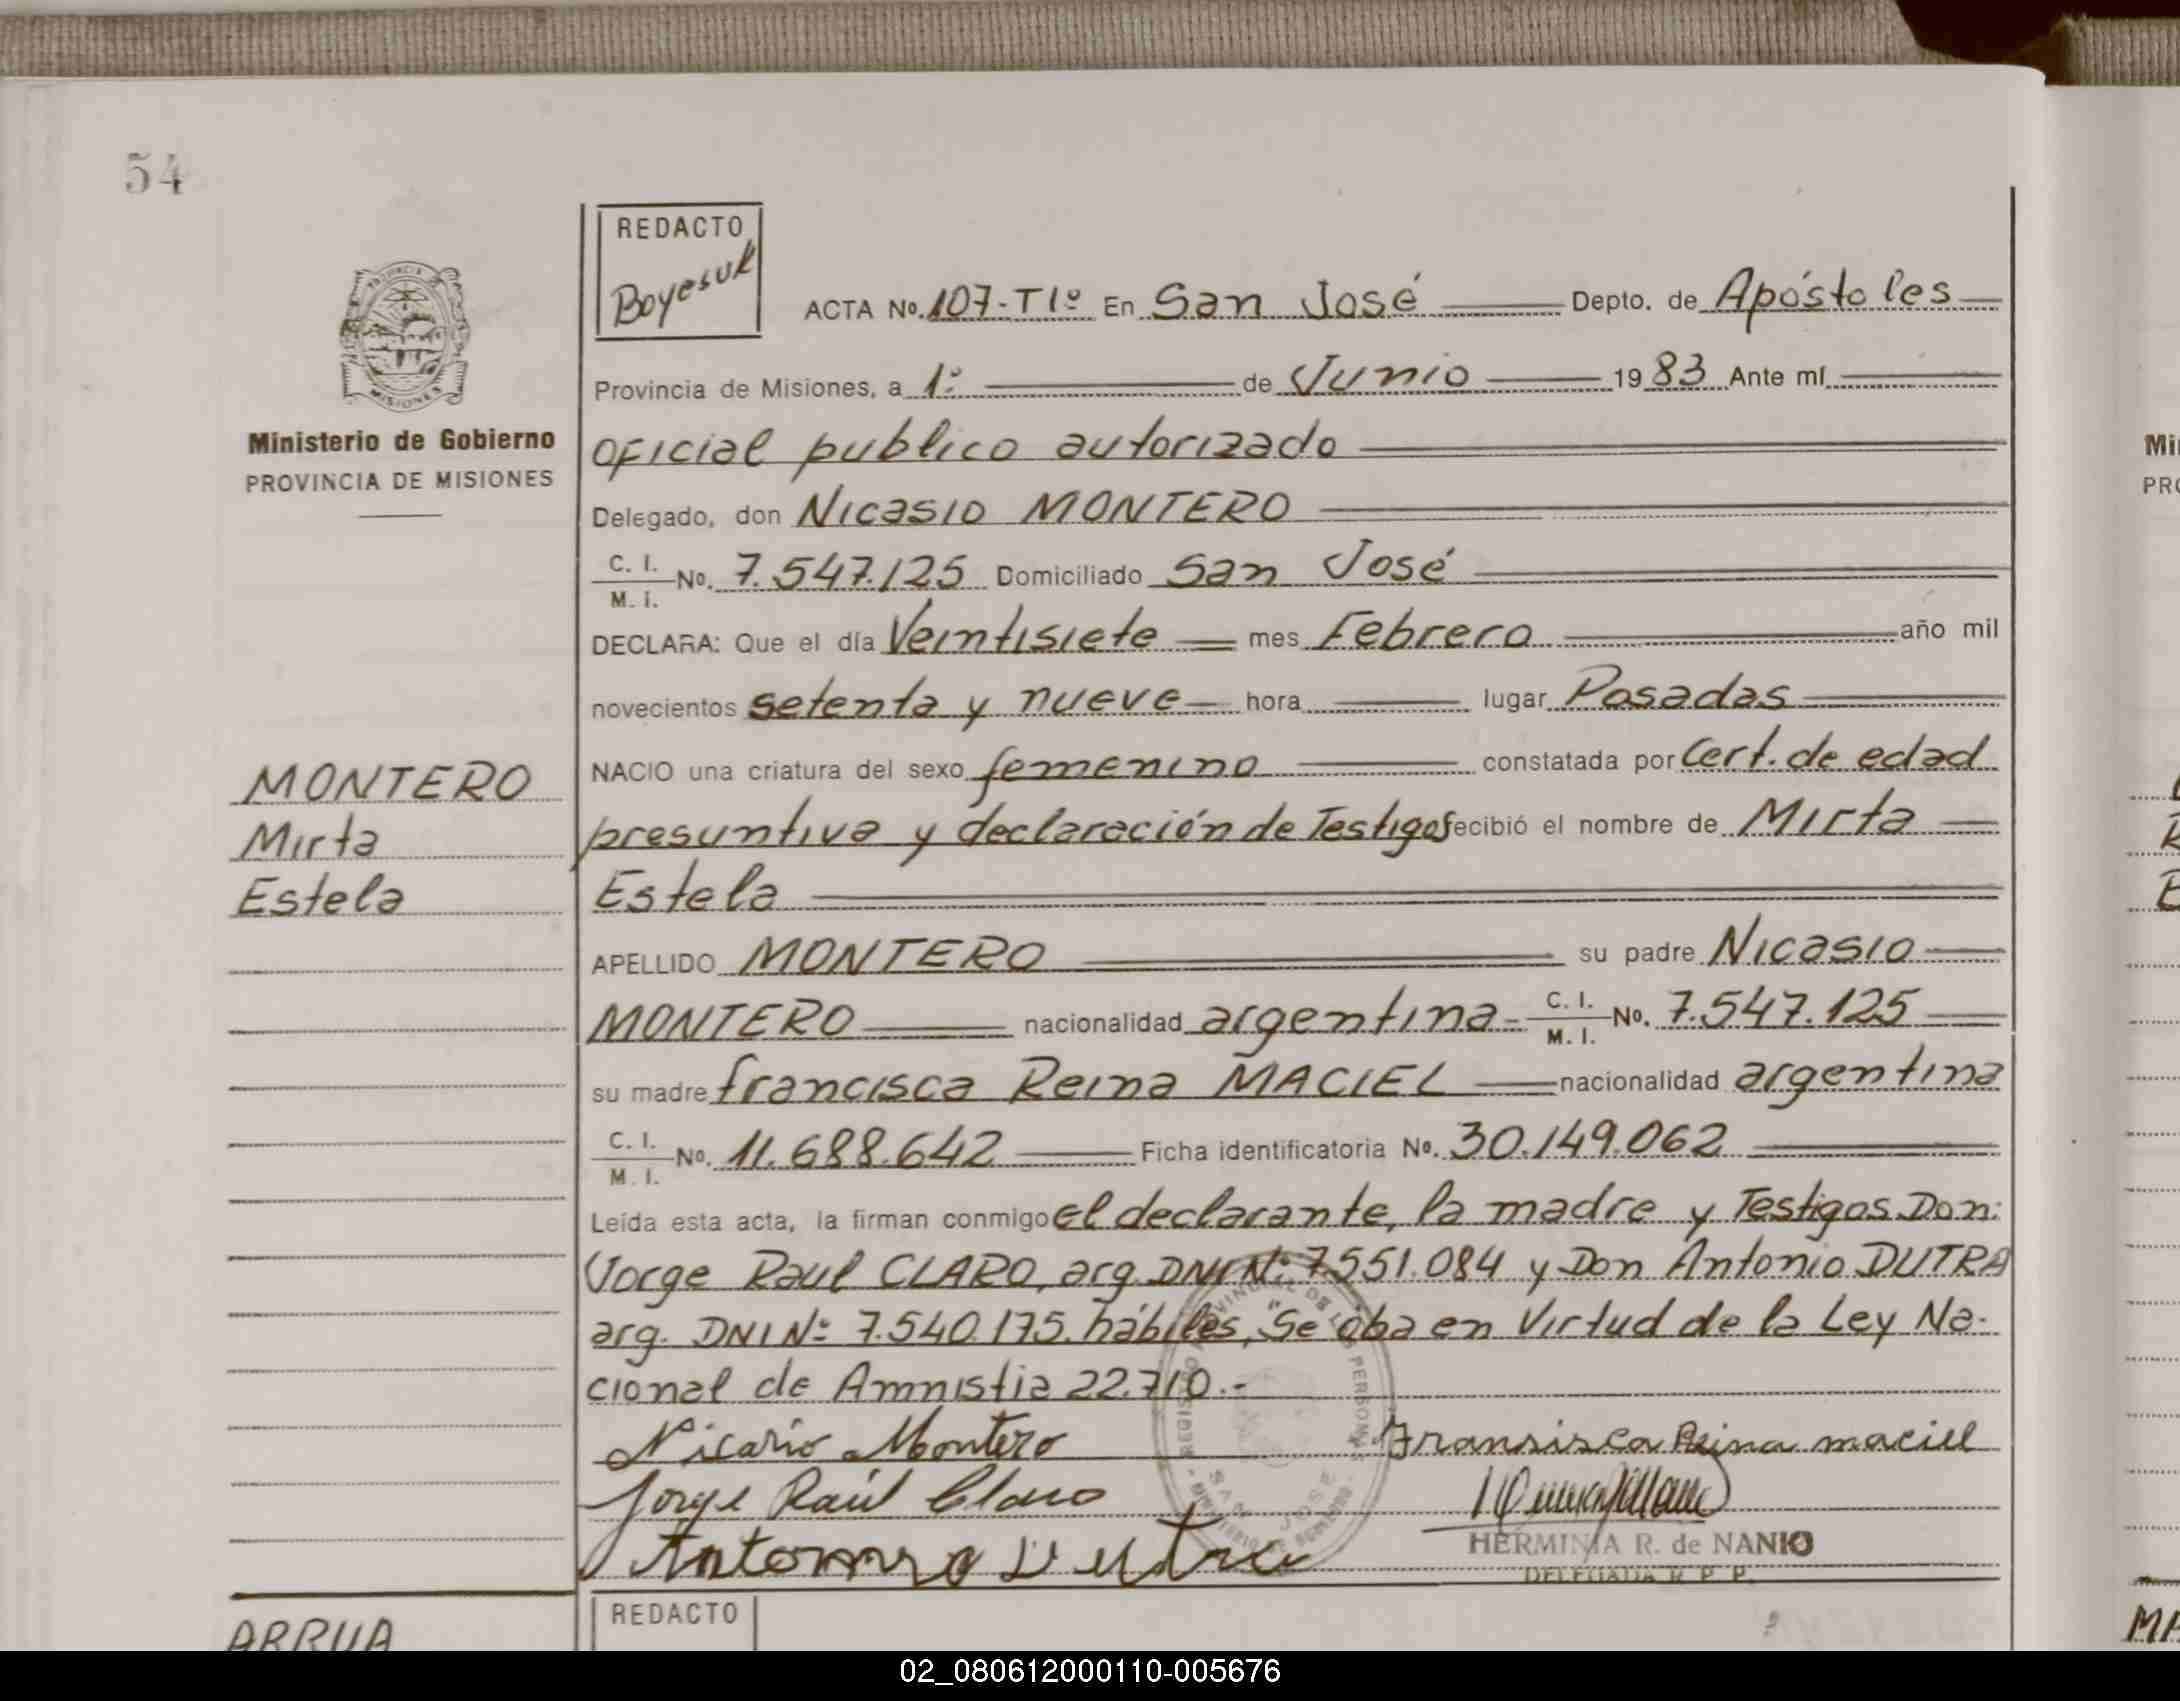 54
REDACTO
Boyesuk
ACTA No. 107-T1º En San José Depto. de Apóstoles
Provincia de Misiones, a 1º de Junio 1983 Ante mí
Ministerio de Gobierno
PROVINCIA DE MISIONES
oficial publico autorizado
Delegado, don Nicasio MONTERO
C. I. M. I. No. 7.547.125 Domiciliado San José
DECLARA: Que el día Veintisiete mes Febrero año mil
novecientos setenta y nueve hora lugar Posadas
NACIO una criatura del sexo femenino constatada por Cert. de edad
presuntiva y declaración de Testigos recibió el nombre de Mirta
Estela
MONTERO
Mirta
Estela
APELLIDO MONTERO su padre Nicasio
MONTERO nacionalidad argentina C. I. M. I. No. 7.547.125
su madre francisca Reina MACIEL nacionalidad argentina
C. I. M. I. No. 11.688.642 Ficha identificatoria No. 30.149.062
Leída esta acta, la firman conmigo el declarante, la madre y Testigos Don:
Jorge Raul CLARO, arg. DNI Nº 7.551.084 y Don Antonio DUTRA
arg. DNI Nº 7.540.175. hábiles, Se oba en Virtud de la Ley Na-
cional de Amnistia 22.710.-
Nicasio Montero
Fransisca Reina maciel
Jorge Raúl Claro
Antonio Dutra
HERMINIA R. de NANIO
DELEGADA R. P. P.
REGISTRO PROVINCIAL DE LAS PERSONAS
SAN JOSE
MINISTERIO DE GOBIERNO
REDACTO
ARRUA
02_080612000110-005676